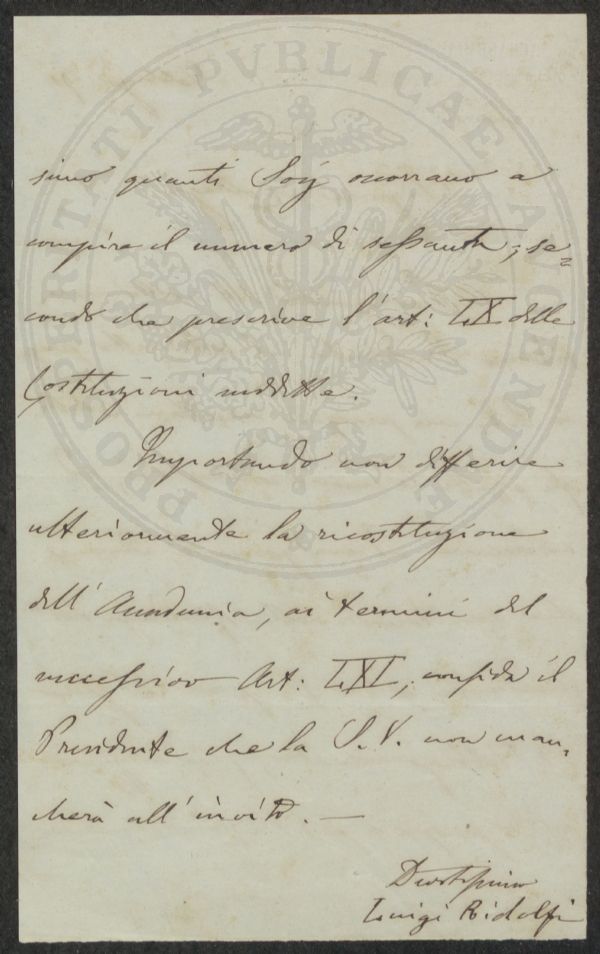 simo quanti Socj occorrano a
compire il numero di sessanta, se=
condo che prescrive l'art: LX delle
Costituzioni suddette.
Importando non differire
ulteriormente la ricostituzione
dell'Accademia, ai termini del
successivo Art: LXI, confida il
Presidente che la S. V. non man=
cherà all'invito. —
Devotissimo
Luigi Ridolfi
PROSPERITATI PVBLICAE AVGENDAE